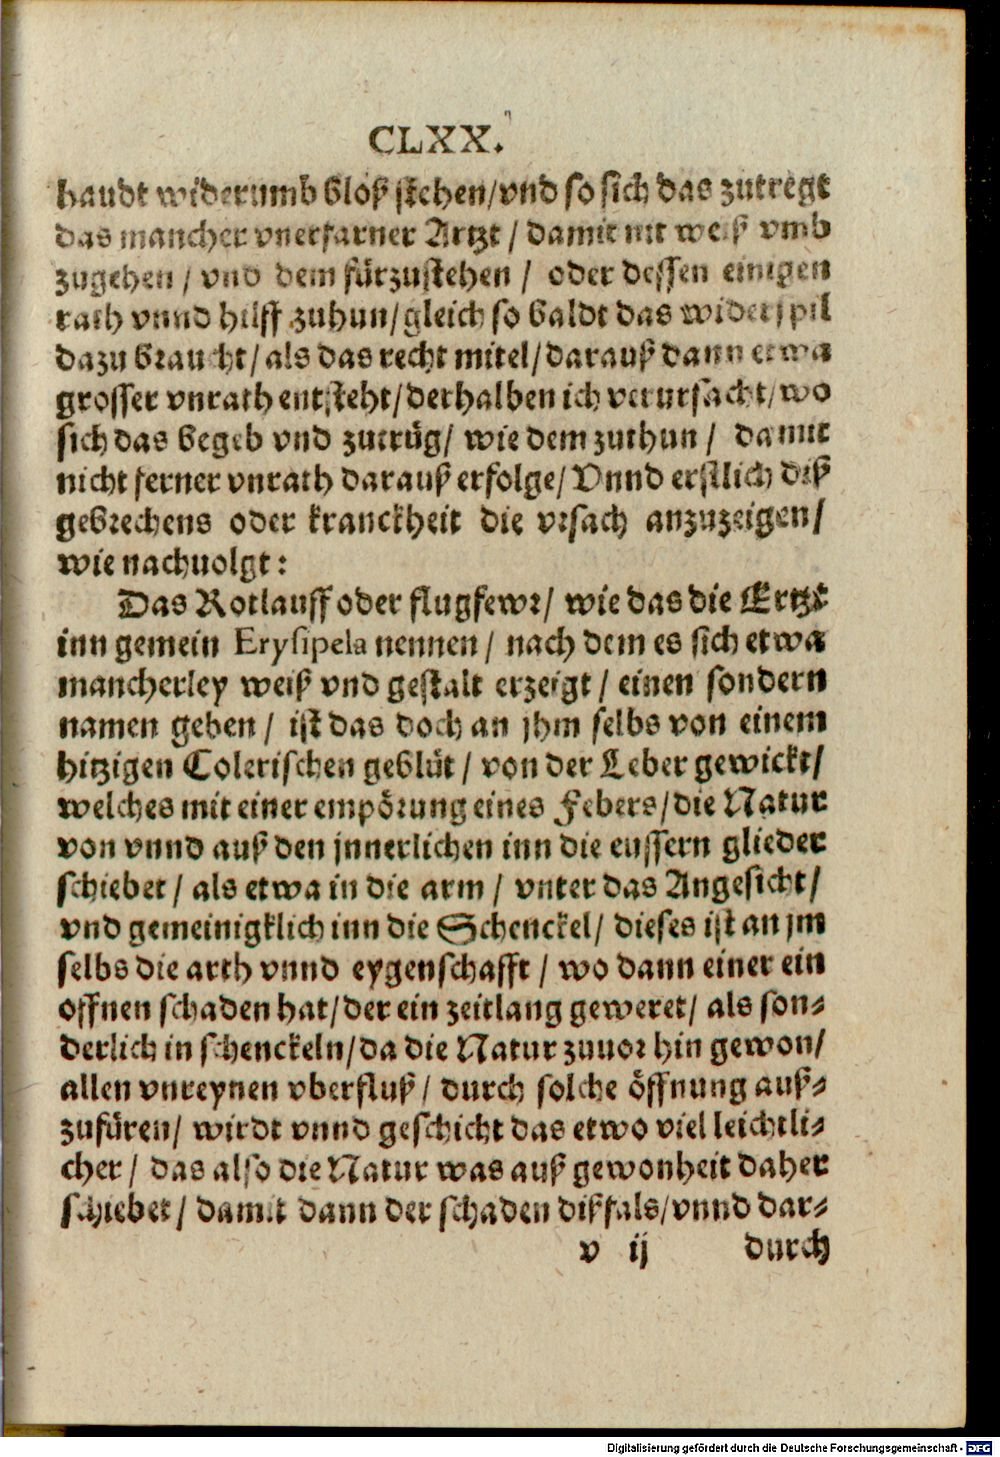 CLXX.
haudt widerumb bloß stehen/vnd so sich das zutregt
das mancher vnerfarner Artzt / damit nit weiß vmb
zugehen / vnd dem fürzustehen / oder dessen einigen
rath vnnd hilff zuhun/gleich so baldt das widerspil
dazu braucht/als das recht mitel/darauß dann etwa
grosser vnrath entsteht/derhalben ich verursacht/wo
sich das begeb vnd zutrüg/ wie dem zuthun / damit
nicht ferner vnrath darauß erfolge/Vnnd erstlich diß
gebrechens oder kranckheit die vrsach anzuzeigen/
wie nachuolgt:
Das Rotlauff oder flugfewr/ wie das die Ertzt
inn gemein Erysipela nennen / nach dem es sich etwa
mancherley weiß vnd gestalt erzeigt / einen sondern
namen geben / ist das doch an jhm selbs von einem
hitzigen Colerischen geblüt / von der Leber gewickt/
welches mit einer empörung eines Febers/die Natur
von vnnd auß den jnnerlichen inn die eussern glieder
schiebet / als etwa in die arm / vnter das Angesicht/
vnd gemeinigklich inn die Schenckel/ dieses ist an jm
selbs die arth vnnd eygenschafft / wo dann einer ein
offnen schaden hat/der ein zeitlang geweret/ als son⸗
derlich in schenckeln/da die Natur zuuor hin gewon/
allen vnreynen vberfluß / durch solche öffnung auß⸗
zufüren/ wirdt vnnd geschicht das etwo viel leichtli⸗
cher / das also die Natur was auß gewonheit daher
schiebet / damit dann der schaden dißfals/vnnd dar⸗
v ij durch
Digitalisierung gefördert durch die Deutsche Forschungsgemeinschaft - DFG